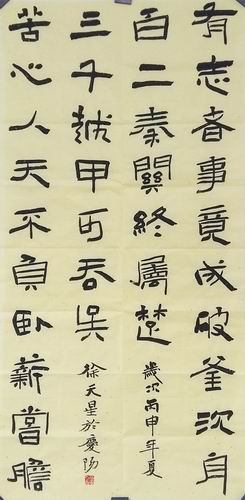 有志者事竟成破釜沈舟
百二秦關終屬楚
苦心人天不負臥薪嘗膽
三千越甲可吞吳
歲次丙申年夏
徐天星於慶陽